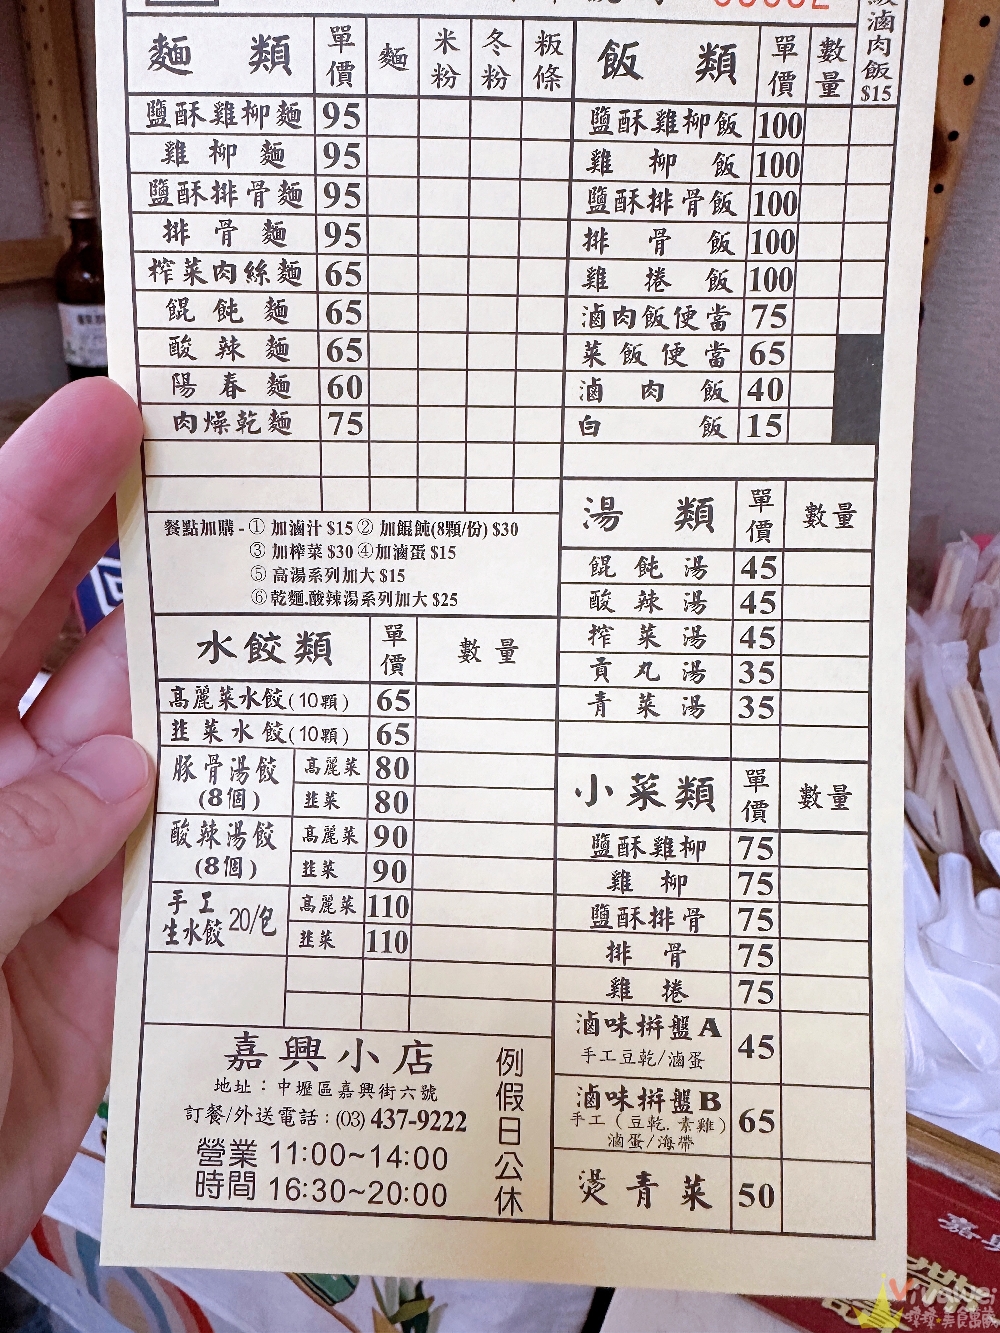 滷肉飯
$15
麵 類 單價 麵 米粉 冬粉 粄條
鹽酥雞柳麵 95
雞柳麵 95
鹽酥排骨麵 95
排骨麵 95
榨菜肉絲麵 65
餛飩麵 65
酸辣麵 65
陽春麵 60
肉燥乾麵 75
餐點加購-① 加滷汁 $15 ② 加餛飩(8顆/份) $30
③ 加榨菜 $30 ④加滷蛋 $15
⑤ 高湯系列加大 $15
⑥ 乾麵.酸辣湯系列加大 $25
水餃類 單價 數量
高麗菜水餃(10顆) 65
韭菜水餃(10顆) 65
豚骨湯餃(8個) 高麗菜 80
韭菜 80
酸辣湯餃(8個) 高麗菜 90
韭菜 90
手工生水餃 20/包 高麗菜 110
韭菜 110
嘉興小店
地址：中壢區嘉興街六號
訂餐/外送電話：(03) 437-9222
營業時間 11:00~14:00
16:30~20:00
例假日公休
飯 類 單價 數量
鹽酥雞柳飯 100
雞柳飯 100
鹽酥排骨飯 100
排骨飯 100
雞捲飯 100
滷肉飯便當 75
菜飯便當 65
滷肉飯 40
白飯 15
湯 類 單價 數量
餛飩湯 45
酸辣湯 45
榨菜湯 45
貢丸湯 35
青菜湯 35
小菜類 單價 數量
鹽酥雞柳 75
雞柳 75
鹽酥排骨 75
排骨 75
雞捲 75
滷味拼盤A 45
手工豆乾/滷蛋
滷味拼盤B 65
手工（豆乾.素雞）
滷蛋/海帶
燙青菜 50